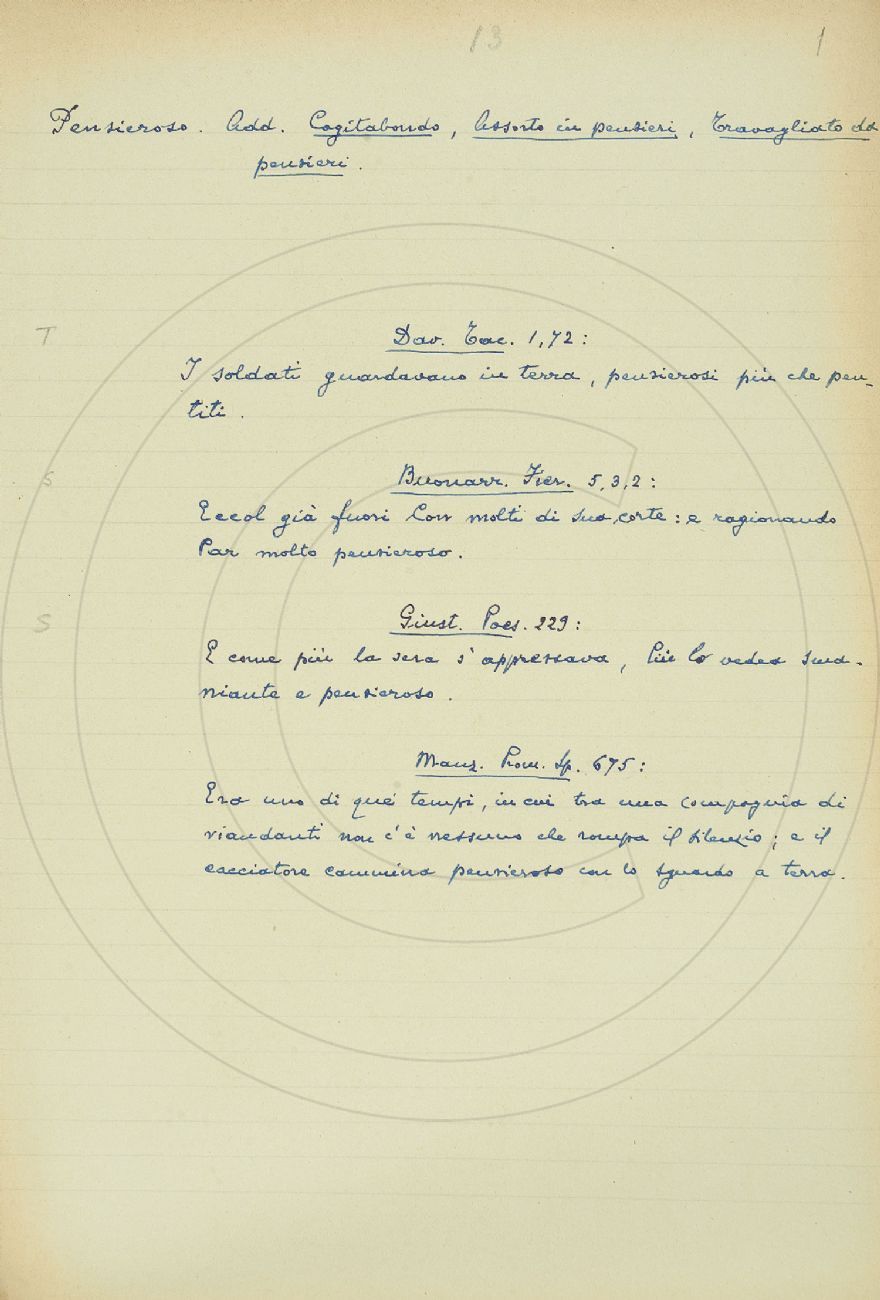 13
1
Pensieroso. Add. Cogitabondo, Assorto in pensieri, Travagliato da
pensieri.
T
Dav. Tac. 1,72:
I soldati guardavano in terra, pensierosi più che pen-
titi.
S
Buonarr. Fier. 5,3,2:
Eccol già fuori Con molti di sua corte: e ragionando
Par molto pensieroso.
S
Giust. Poes. 229:
E come più la sera s'appressava, Più lo vedea sma-
niante e pensieroso.
Manz. Prom. Sp. 675:
Era uno di que' tempi, in cui tra una compagnia di
viandanti non c'è nessuno che rompa il silenzio; e il
cacciatore cammina pensieroso con lo sguardo a terra.